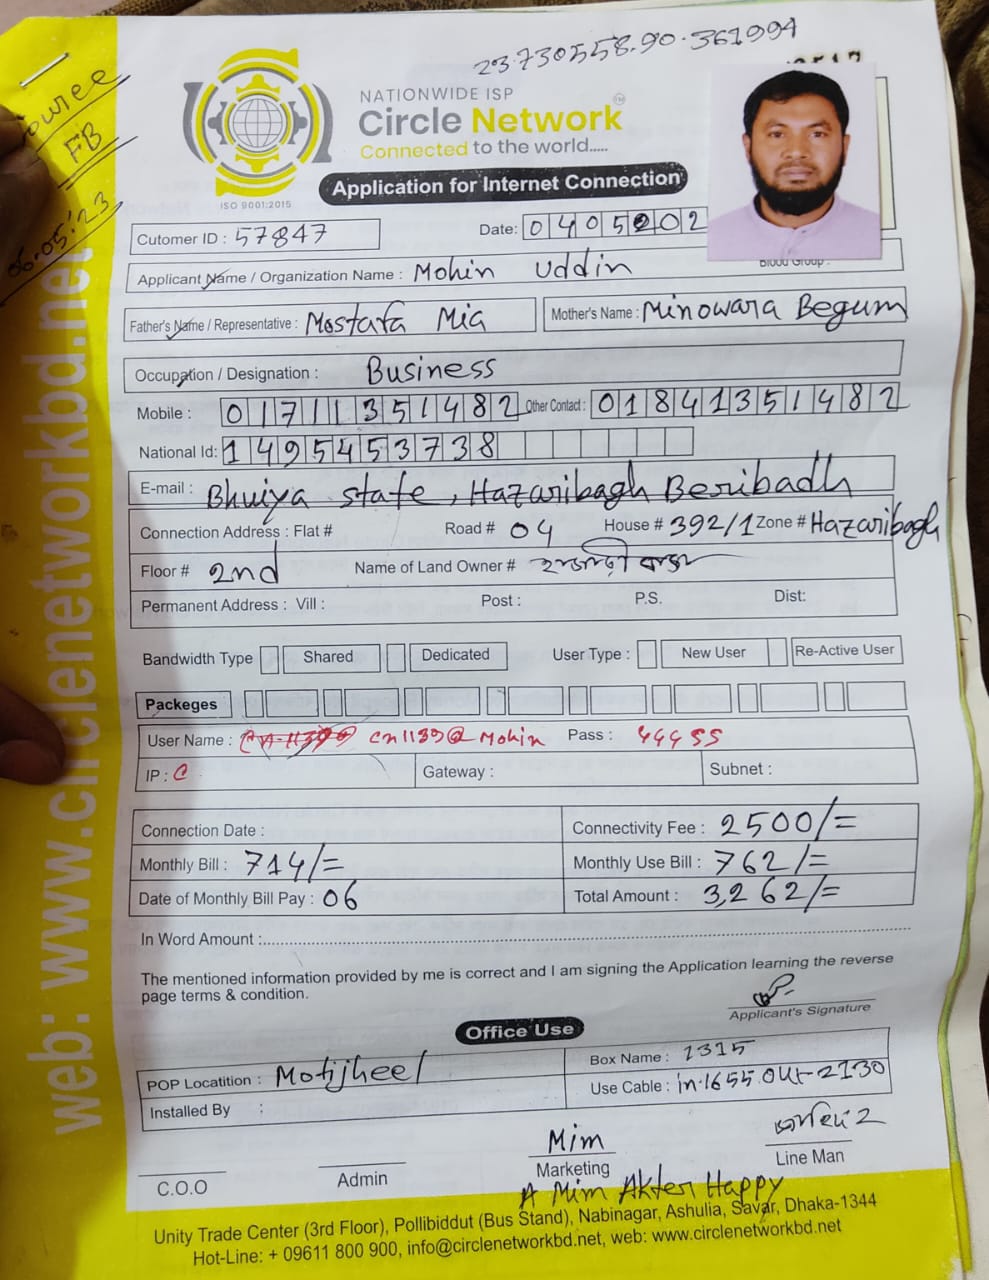 23.730558.90.361994
Source
FB
06.05.'23
NATIONWIDE ISP
Circle Network
Connected to the world.....
ISO 9001:2015
Application for Internet Connection
Cutomer ID : 57847
Date: 0405202
Applicant Name / Organization Name : Mohin Uddin
Blood Group :
Father's Name / Representative : Mostafa Mia
Mother's Name : Minowara Begum
Occupation / Designation : Business
Mobile : 01711351482 Other Contact : 01841351482
National Id: 1495453738
E-mail : Bhuiya state, Hazaribagh Beribadh
Connection Address : Flat # Road # 04 House # 392/1 Zone # Hazaribagh
Floor # 2nd Name of Land Owner #
Permanent Address : Vill : Post : P.S. Dist:
Bandwidth Type Shared Dedicated User Type : New User Re-Active User
Packeges
User Name : cn1139@Mohin Pass : 44455
IP : C Gateway : Subnet :
Connection Date : Connectivity Fee : 2500/=
Monthly Bill : 714/= Monthly Use Bill : 762/=
Date of Monthly Bill Pay : 06 Total Amount : 3,262/=
In Word Amount :
The mentioned information provided by me is correct and I am signing the Application learning the reverse
page terms & condition.
Applicant's Signature
Office Use
POP Locatition : Motijheel Box Name : 1315
Installed By : Use Cable : in.1655.Out-2130
C.O.O
Admin
Mim
Marketing
Line Man
A Mim Akter Happy
Unity Trade Center (3rd Floor), Pollibiddut (Bus Stand), Nabinagar, Ashulia, Savar, Dhaka-1344
Hot-Line: + 09611 800 900, info@circlenetworkbd.net, web: www.circlenetworkbd.net
web: www.circlenetworkbd.net